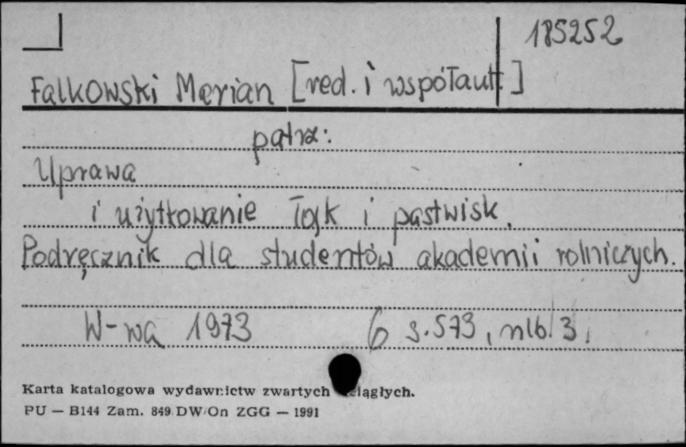 185252
Falkowski Marian [red. i współaut.]
patrz:
Uprawa
i użytkowanie łąk i pastwisk.
Podręcznik dla studentów akademii rolniczych.
W-wa 1973 s. 573, nlb. 3.
Karta katalogowa wydawnictw zwartych ciągłych.
PU — B144 Zam. 849 DW/On ZGG — 1991